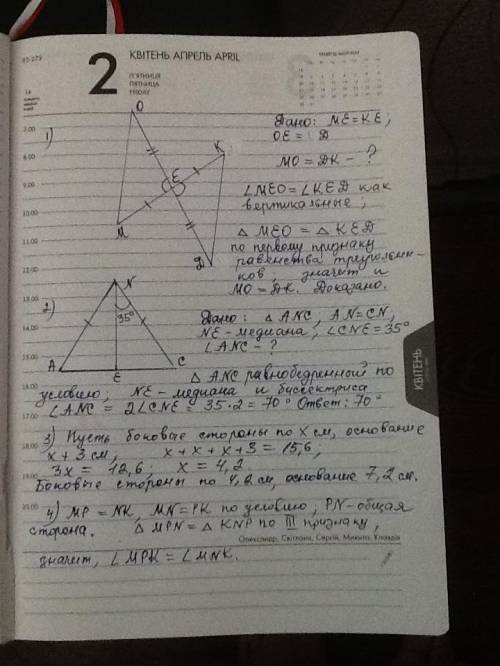 КВІТЕНЬ АПРЕЛЬ APRIL
2
П'ЯТНИЦЯ
ПЯТНИЦА
FRIDAY
7.00
8.00
9.00
10.00
11.00
12.00
13.00
14.00
15.00
16.00
17.00
18.00
19.00
20.00
КВІТЕНЬ
1)
O
K
E
M
D
Дано: ME=KE;
OE= D
MO=DK-?
∠MEO=∠KED как
вертикальные;
△MEO=△KED
по первому признаку
равенства треугольни-
ков; значит и
MO=DK. Доказано.
2)
N
35°
A
E
C
Дано: △ANC, AN=CN,
NE-медиана, ∠CNE=35°
∠ANC-?
△ANC равнобедренный по
условию, NE-медиана и биссектриса
∠ANC=2∠CNE=35·2=70° Ответ: 70°
3) Пусть боковые стороны по x см, основание
x+3 см, x+x+x+3=15,6,
3x=12,6; x=4,2.
Боковые стороны по 4,2 см, основание 7,2 см.
4) MP=NK, MN=PK по условию, PN-общая
сторона. △MPN=△KNP по III признаку,
Олександр, Світлана, Сергій, Микита, Клавдія
значит, ∠MPK=∠MNK.